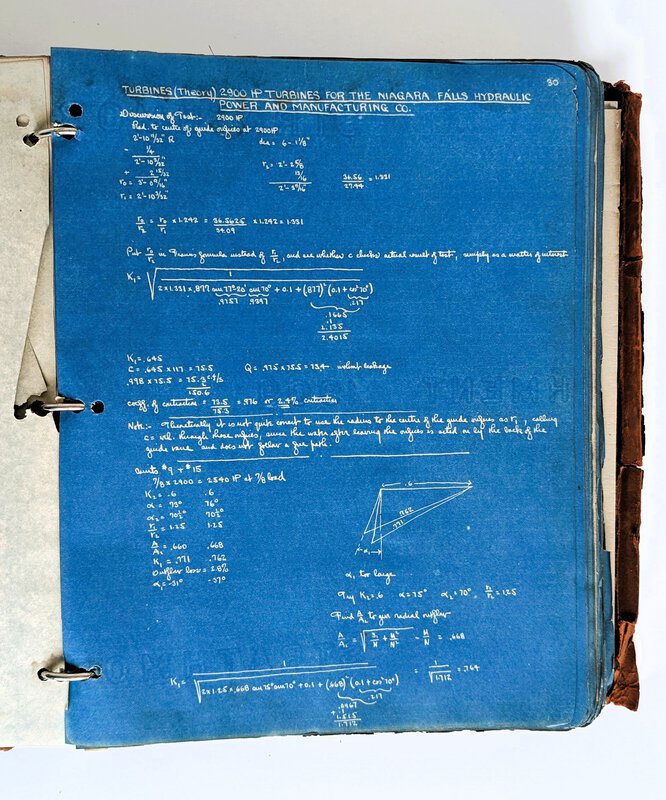 30
TURBINES (Theory) 2900 HP TURBINES FOR THE NIAGARA FALLS HYDRAULIC
POWER AND MANUFACTURING CO.
Discussion of Test:- 2900 HP
Rad. to centre of guide orifices at 2900 HP
dia = 6 - 1 1/8"
r₁ = 2'-10 3/32"
36.56 / 27.44 = 1.331
r₀/r₂ = r₀/r₁ × 1.242 = 36.5625/34.09 × 1.242 = 1.331
Put r₀/r₂ in Francis formula instead of r₁/r₂, and see whether c checks actual result of test, simply as a matter of interest
K₁ = √ 1 / 2×1.331×.877 sin 77°20' sin 70° + 0.1 + (.877)² (0.1 + cos² 70°)
.9757 .9397 .217
.1665
.1
2.135
2.4015
K₁ = .645
C = .645 × 117 = 75.5 Q = .975 × 75.5 = 73.4 without leakage
.998 × 75.5 = 75.3 c.f/s
2
150.6
coeff. of contraction = 73.5/75.3 = .976 or 2.4% contraction
Note:- Theoretically it is not quite correct to use the radius to the centre of the guide orifices as r₁, calling
c = vel. through these orifices, since the water after leaving the orifices is acted on by the back of the
guide vane and does not follow a free path.
Units #9 + #15
7/8 × 2900 = 2540 HP at 7/8 load
K₂ = .6 .6
α = 73° 76°
α₂ = 70½° 70½°
r₁/r₂ = 1.25 1.25
A/A₁ = .660 .668
K₁ = .771 .762
Outflow loss = 2.8%
α₁ = -31° -37°
.6
.762
.771
α₁ too large
Try K₂ = .6 α = 75° α₂ = 70°, r₁/r₂ = 1.25
Find A/A₁ to give radial outflow
A/A₁ = √ S/N + M²/N² - M/N = .668
K₁ = 1 / √ 2×1.25×.668 sin 75° sin 70° + 0.1 + (.668)² (0.1 + cos² 70°) = 1/√1.712 = .764
.217
.0967
+ 1.515
1.712